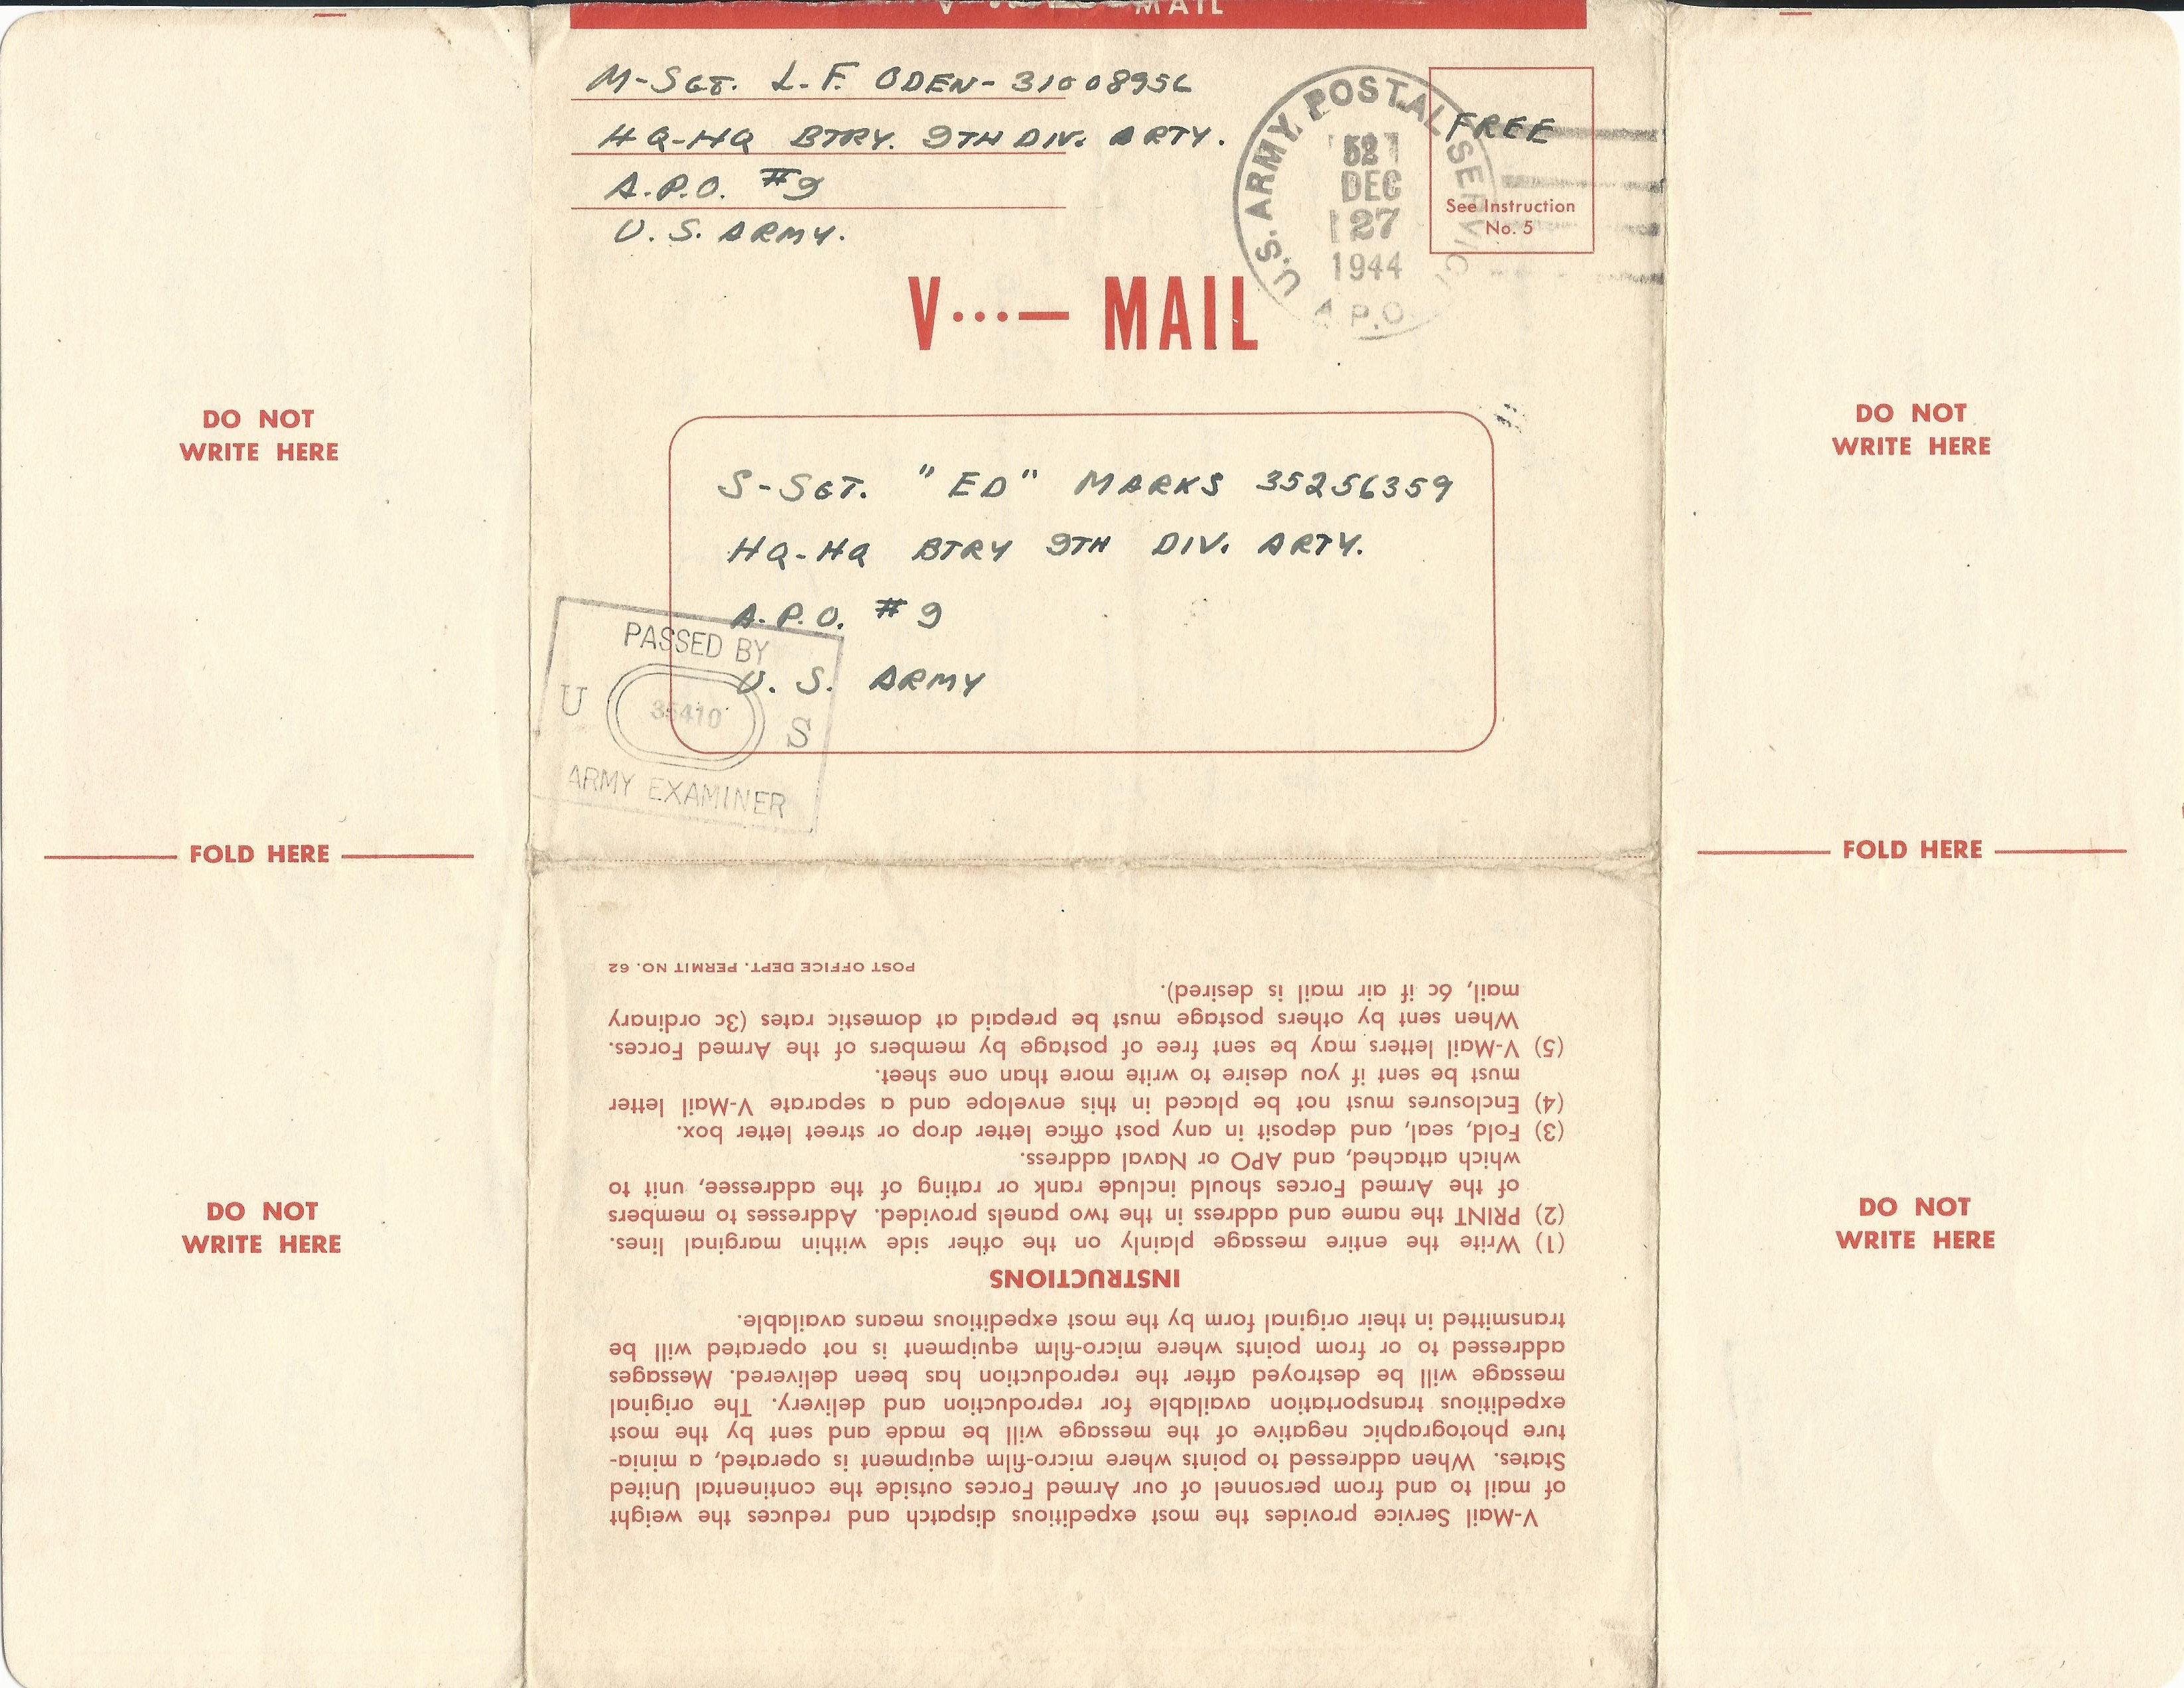 V MAIL
M-SGT. L.F. ODEN-31008956
HQ-HQ BTRY. 9TH DIV. ARTY.
A.P.O. #9
U.S. ARMY.
U.S. ARMY. POSTAL SERVICE
DEC
27
1944
A.P.O.
FREE
See Instruction
No. 5
V···— MAIL
DO NOT
WRITE HERE
DO NOT
WRITE HERE
S-SGT. "ED" MARKS 35256359
HQ-HQ BTRY 9TH DIV. ARTY.
A.P.O. #9
U. S. ARMY
PASSED BY
U 35410 S
ARMY EXAMINER
FOLD HERE
FOLD HERE
DO NOT
WRITE HERE
DO NOT
WRITE HERE
V-Mail Service provides the most expeditious dispatch and reduces the weight
of mail to and from personnel of our Armed Forces outside the continental United
States. When addressed to points where micro-film equipment is operated, a minia-
ture photographic negative of the message will be made and sent by the most
expeditious transportation available for reproduction and delivery. The original
message will be destroyed after the reproduction has been delivered. Messages
addressed to or from points where micro-film equipment is not operated will be
transmitted in their original form by the most expeditious means available.
INSTRUCTIONS
(1) Write the entire message plainly on the other side within marginal lines.
(2) PRINT the name and address in the two panels provided. Addresses to members
of the Armed Forces should include rank or rating of the addressee, unit to
which attached, and APO or Naval address.
(3) Fold, seal, and deposit in any post office letter drop or street letter box.
(4) Enclosures must not be placed in this envelope and a separate V-Mail letter
must be sent if you desire to write more than one sheet.
(5) V-Mail letters may be sent free of postage by members of the Armed Forces.
When sent by others postage must be prepaid at domestic rates (3c ordinary
mail, 6c if air mail is desired).
POST OFFICE DEPT. PERMIT NO. 62